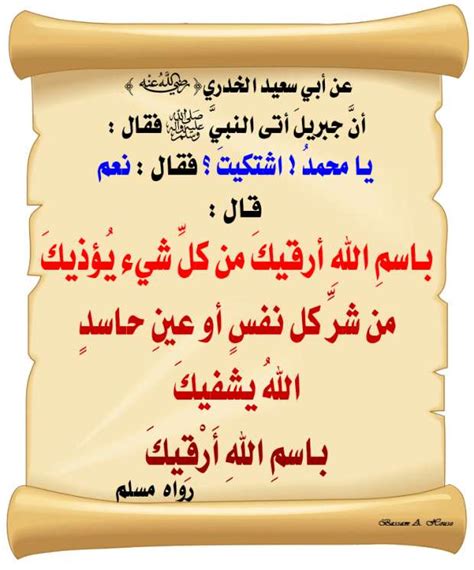 عن أبي سعيد الخدري ﴿ رضي الله عنه ﴾
أنَّ جبريلَ أتى النبيَّ ﷺ فقال :
يا محمدُ ! اشتكيتَ ؟ فقال : نعم
قال :
باسمِ اللهِ أرقيكَ من كلِّ شيءٍ يُؤذيكَ
من شرِّ كل نفسٍ أو عينِ حاسدٍ
اللهُ يشفيكَ
باسمِ اللهِ أَرْقيكَ
رواه مسلم
Bassam A. House